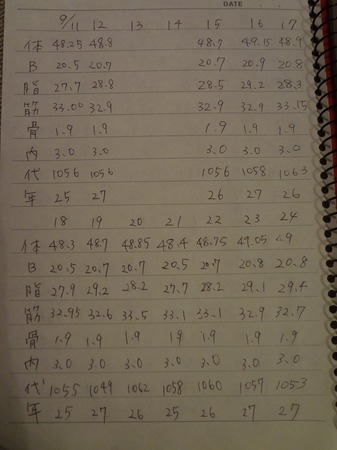 DATE
9/11 12 13 14 15 16 17
体 48.25 48.8 48.7 49.15 48.9
B 20.5 20.7 20.7 20.9 20.8
脂 27.7 28.8 28.5 29.2 28.3
筋 33.00 32.9 32.9 32.9 33.15
骨 1.9 1.9 1.9 1.9 1.9
内 3.0 3.0 3.0 3.0 3.0
代 1056 1056 1056 1058 1063
年 25 27 26 27 26
18 19 20 21 22 23 24
体 48.3 48.7 48.85 48.4 48.75 49.05 49
B 20.5 20.7 20.7 20.5 20.7 20.8 20.8
脂 27.9 29.2 28.2 27.7 28.2 29.1 29.4
筋 32.95 32.6 33.5 33.1 33.1 32.9 32.7
骨 1.9 1.9 1.9 1.9 1.9 1.9 1.9
内 3.0 3.0 3.0 3.0 3.0 3.0 3.0
代 1055 1049 1062 1058 1060 1057 1053
年 25 27 26 25 26 27 27